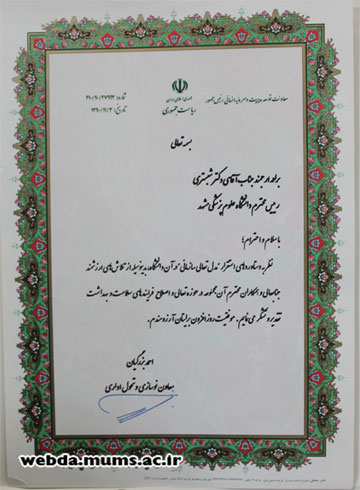 جمهوری اسلامی ایران
ریاست جمهوری
معاونت توسعه مدیریت و سرمایه انسانی رئیس جمهور
شماره:
تاریخ:
بسمه تعالی
برادر ارجمند جناب آقای دکتر شبستری
رییس محترم دانشگاه علوم پزشکی مشهد
با سلام و احترام؛
نظر به دستاوردهای استقرار "مدل تعالی سازمانی" در آن دانشگاه، بدینوسیله از تلاش های ارزشمند
جنابعالی و همکاران محترم آن مجموعه در حوزه تعالی و اصلاح فرایندهای سلامت و بهداشت
تقدیر و تشکر می نمایم. موفقیت روز افزون برایتان آرزومندم.
احمد بزرگیان
معاون نوسازی و تحول اداری
webda.mums.ac.ir